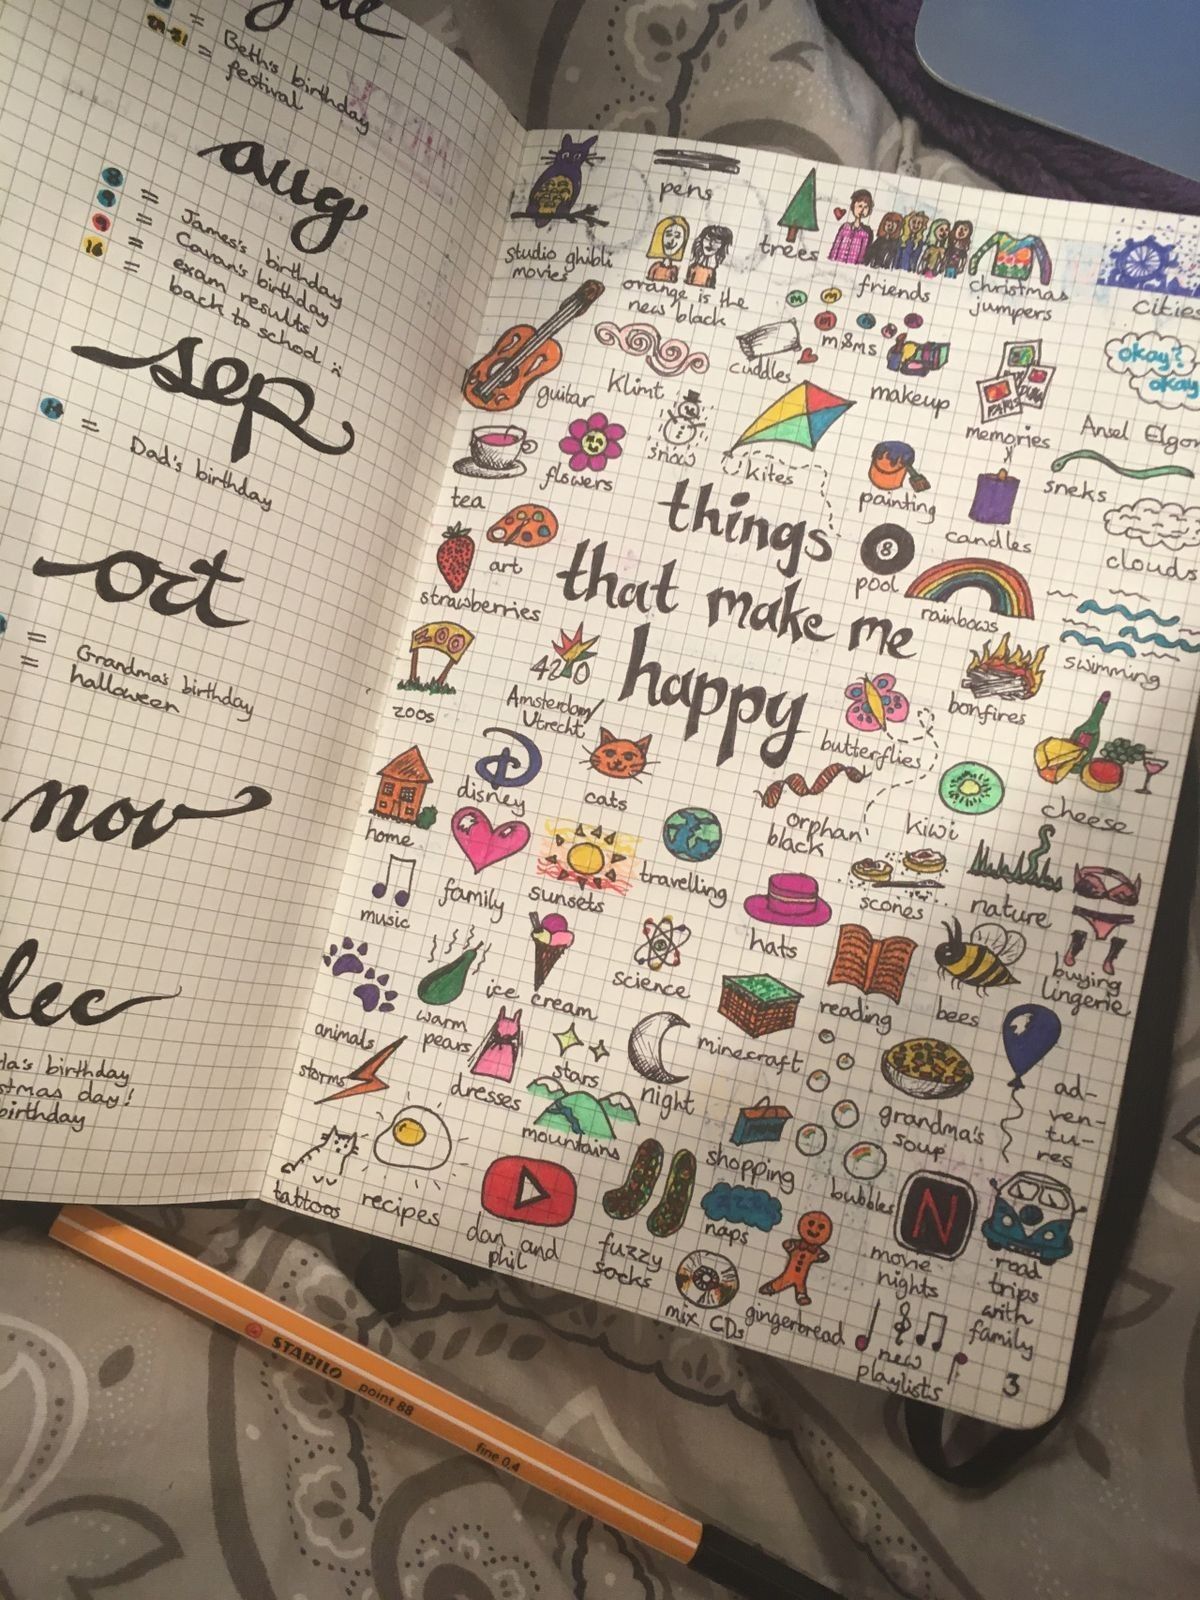 = Beth's birthday
= festival
aug
8 = James's birthday
9 = Cavan's birthday
9 = exam results
16 = back to school :(
sep
= Dad's birthday
oct
= Grandmas birthday
= halloween
nov
birthday
3
things
that make me
happy
studio ghibli
movies
pens
orange is the
new black
trees
friends
christmas
jumpers
cities
guitar
Klimt
cuddles
m&ms
makeup
PARIS
memories
okay?
okay
Ansel Elgort
tea
flowers
snow
kites
painting
candles
sneks
clouds
strawberries
art
8
pool
rainbows
swimming
ZOO
zoos
420
Amsterdam/
Utrecht
butterflies
bonfires
cheese
home
D
disney
cats
orphan
black
kiwi
music
family
sunsets
travelling
hats
scones
nature
buying
lingerie
animals
warm
pears
ice cream
science
minecraft
reading
bees
storms
dresses
stars
night
grandma's
soup
ad-
ven-
tu-
res
tattoos
recipes
mountains
shopping
bubbles
dan and
phil
fuzzy
socks
naps
mix CDs
gingerbread
N
movie
nights
new
playlists
road
trips
with
family
STABILO point 88 fine 0.4